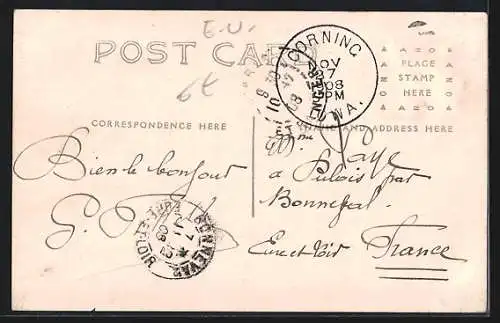 E.U.
POST CARD
6t
CORNING
NOV
27
1908
PM
IOWA.
AZO
PLACE
STAMP
HERE
AZO
CORRESPONDENCE HERE
NAME AND ADDRESS HERE
Bien le bonjour
Mme Faye
à Pulois par
Bonneval
Eure et Loir France
BONNEVAL
7
08
EURE-ET-LOIR